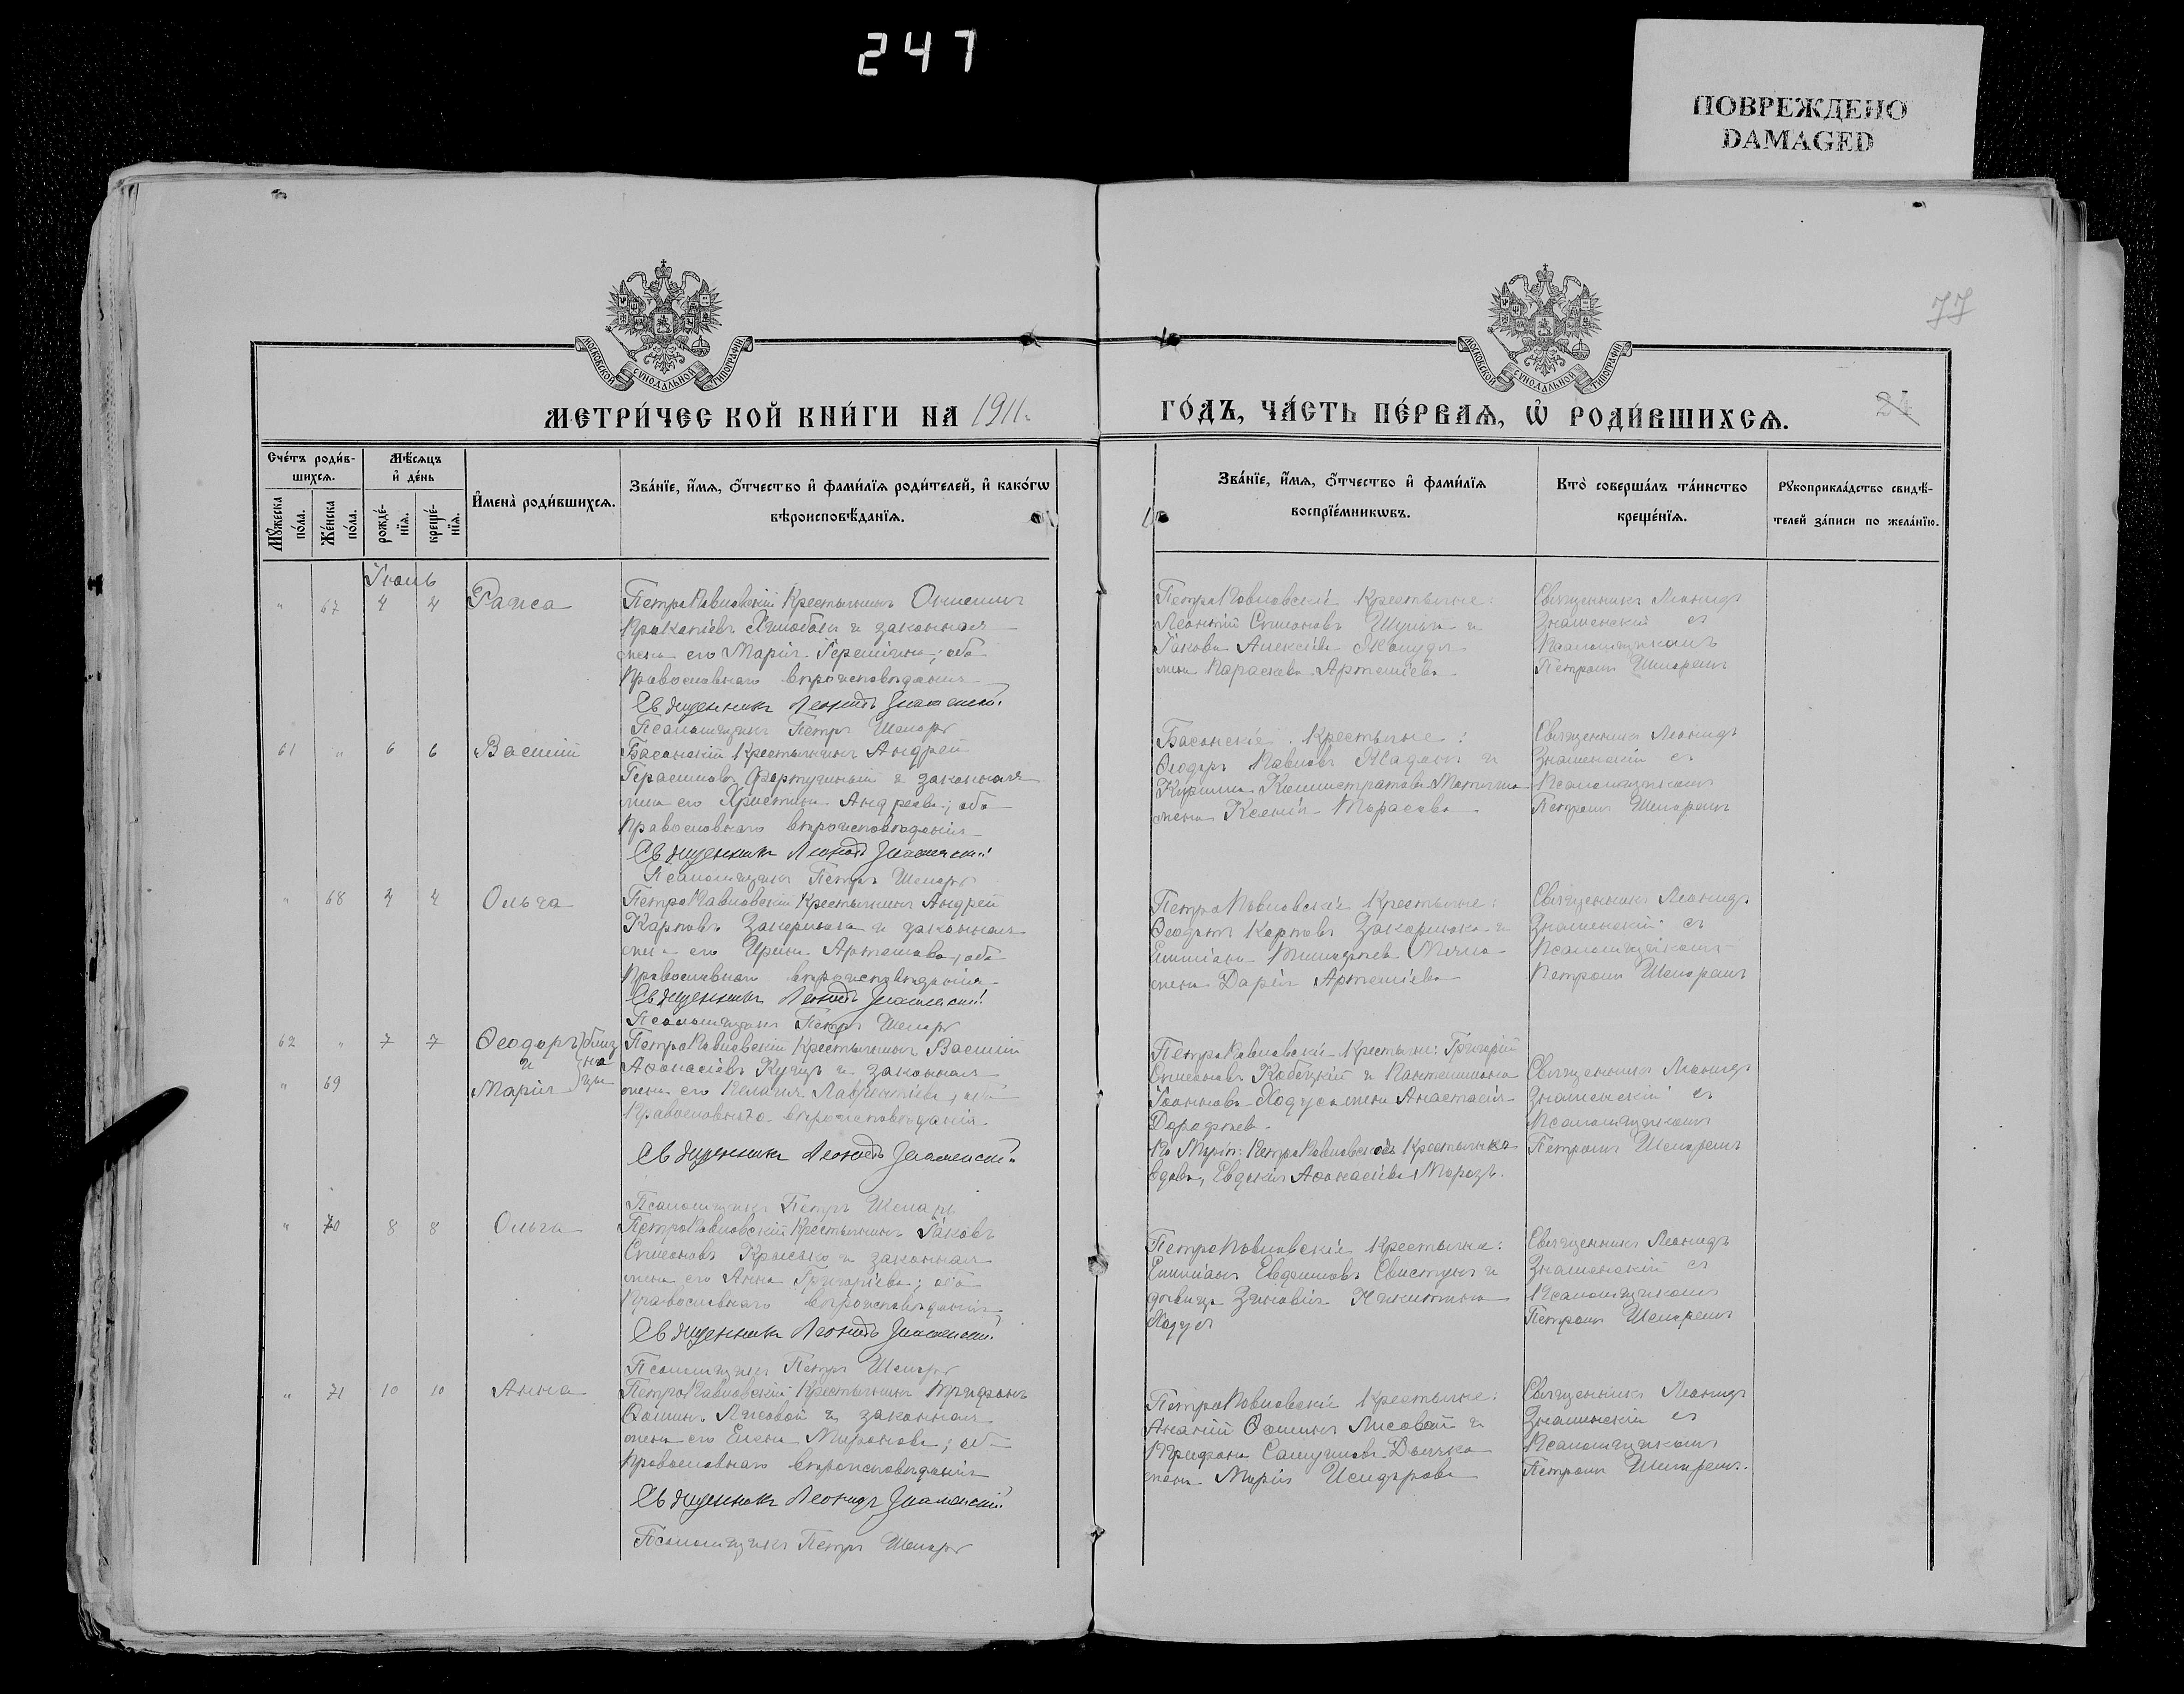 247
ПОВРЕЖДЕНО
DAMAGED
77
МОСКОВСКОЙ СУНОДАЛЬНОЙ ТИПОГРАФІИ
МОСКОВСКОЙ СУНОДАЛЬНОЙ ТИПОГРАФІИ
МЕТРИ́ЧЕСКОЙ КНИ́ГИ НА 1911 г.
ГО́ДЪ, ЧА́СТЬ ПЕ́РВАѦ, Ѡ҆ РОДИ́ВШИХСѦ.
24
Сче́тъ роди́в-
шихсѧ.
Мꙋ́жеска по́ла.
Же́нска по́ла.
Мѣ́сѧцъ
и҆ де́нь
рожде́-
нїѧ.
креще́-
нїѧ.
И҆мена̀ роди́вшихсѧ.
Зва́нїе, и҆́мѧ, ѻ҆́тчество и҆ фами́лїѧ роди́телей, и҆ како́гѡ
вѣроисповѣ́данїѧ.
Зва́нїе, и҆́мѧ, ѻ҆́тчество и҆ фами́лїѧ
воспрїе́мникѡвъ.
Кто̀ соверша́лъ та́инство
креще́нїѧ.
Рꙋкоприкла́дство свидѣ́-
телей за́писи по жела́нїю.
Іюль
" 67 4 4 Раиса
ПетроПавловскій Крестьянинъ Онисимъ
Прокопіевъ и законная
жена его Марія Іереміина; оба
Православнаго вѣроисповѣданія
Священникъ Леонидъ Знаменскій
Псаломщикъ Петръ Шепаръ
ПетроПавловскіе Крестьяне:
Леонтій Симеоновъ Шульга и
Іакова Алексіева
жена Параскева Артеміева
Священникъ Леонидъ
Знаменскій съ
Псаломщикомъ
Петромъ Шепаремъ
61 " 6 6 Василій
Басанскій Крестьянинъ Андрей
Герасимовъ Фортученый и законная
жена его Христина Андреева; оба
Православнаго вѣроисповѣданія
Священникъ Леонидъ Знаменскій
Псаломщикъ Петръ Шепаръ
Басанскіе Крестьяне:
Ѳеодоръ Павловъ Жаданъ и
Кирилла Каллистратова
жена Ксенія Тарасова
Священникъ Леонидъ
Знаменскій съ
Псаломщикомъ
Петромъ Шепаремъ
" 68 4 4 Ольга
ПетроПавловскій Крестьянинъ Андрей
Карповъ Закорлюка и законная
жена его Ирина Артемова, оба
Православнаго вѣроисповѣданія
Священникъ Леонидъ Знаменскій
Псаломщикъ Петръ Шепаръ
ПетроПавловскіе Крестьяне:
Ѳеодотъ Карповъ Закорлюка и
Емиліана
жена Дарія Артеміева
Священникъ Леонидъ
Знаменскій съ
Псаломщикомъ
Петромъ Шепаремъ
62 " 7 7 Ѳеодоръ близ
и на
" 69 Марія цы
ПетроПавловскій Крестьянинъ Василій
Аѳанасіевъ Куцъ и законная
жена его Пелагія Лаврентіева, оба
Православнаго вѣроисповѣданія
Священникъ Леонидъ Знаменскій
Псаломщикъ Петръ Шепаръ
ПетроПавловскіе Крестьяне: Григорій
Симеоновъ Кобецкій и Пантелимона
Іоаннова Ходуса жена Анастасія
Дороѳіева.
По Маріи: ПетроПавловская Крестьянка
вдова, Евдокія Аѳанасіева Морозъ.
Священникъ Леонидъ
Знаменскій съ
Псаломщикомъ
Петромъ Шепаремъ
" 70 8 8 Ольга
ПетроПавловскій Крестьянинъ Іаковъ
Симеоновъ Крысько и законная
жена его Анна Григоріева; оба
Православнаго вѣроисповѣданія
Священникъ Леонидъ Знаменскій
Псаломщикъ Петръ Шепаръ
ПетроПавловскіе Крестьяне:
Емиліанъ Евфимовъ Свистунъ и
дѣвица Зиновія Никитина
Ходусъ
Священникъ Леонидъ
Знаменскій съ
Псаломщикомъ
Петромъ Шепаремъ
" 71 10 10 Анна
ПетроПавловскій Крестьянинъ Трифонъ
Ѳоминъ Лисовой и законная
жена его Елена Миронова; оба
Православнаго вѣроисповѣданія
Священникъ Леонидъ Знаменскій
Псаломщикъ Петръ Шепаръ
ПетроПавловскіе Крестьяне:
Ананій Ѳоминъ Лисовой и
Трифона Самуилова
жена Марія Исидорова
Священникъ Леонидъ
Знаменскій съ
Псаломщикомъ
Петромъ Шепаремъ.